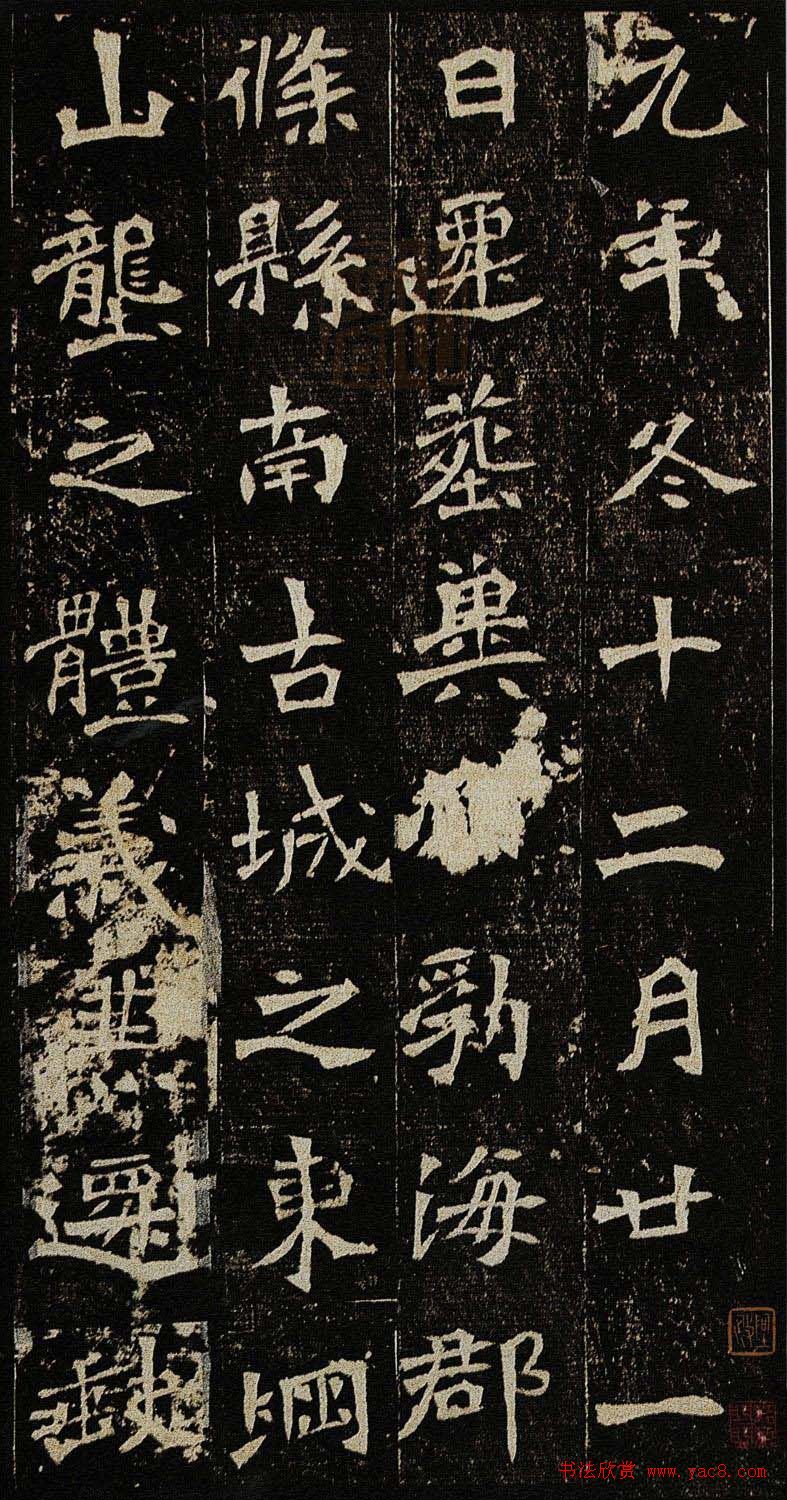 元年冬十二月廿一
日遷葬冀勃海郡
條縣南古城之東堈
山壟之體義非遷
书法欣赏 www.yac8.com